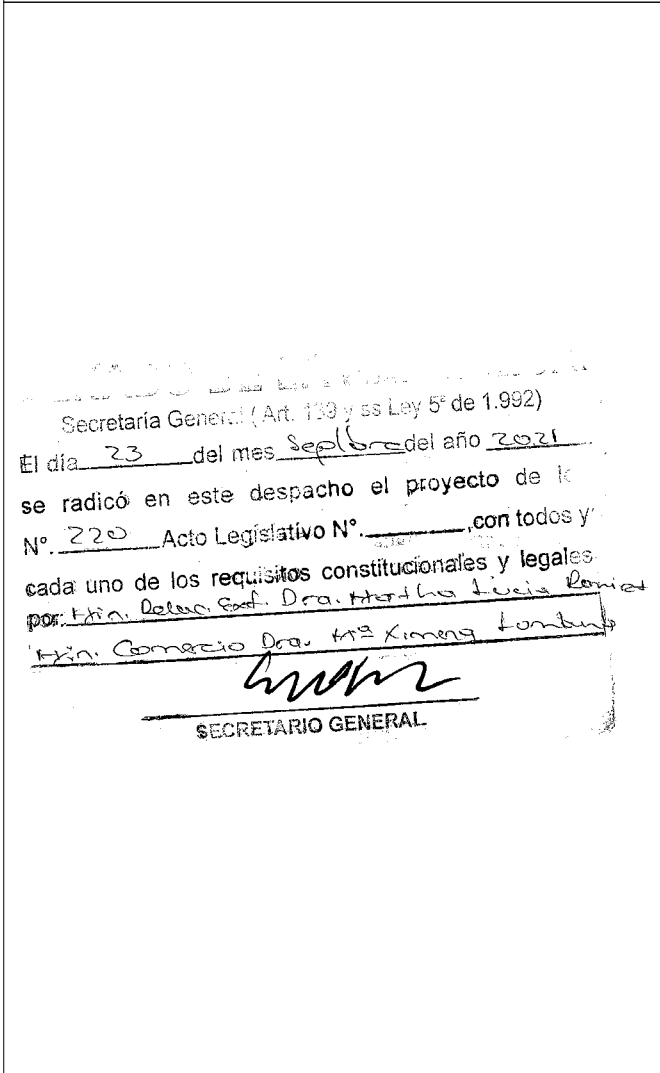 Secretaría General (Art. 139 y ss Ley 5ª de 1.992)
El día 23 del mes Sepbre del año 2021
se radicó en este despacho el proyecto de
N°. 220 Acto Legislativo N°. ,con todos y
cada uno de los requisitos constitucionales y legales
por: Min. Relac. Ext. Dra. Martha Lucia
Min. Comercio Dra. Mª Ximena
SECRETARIO GENERAL